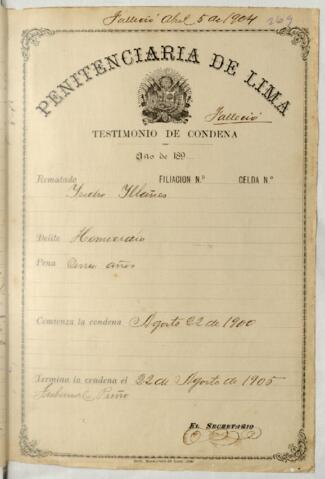 Falleció Abril 5 de 1904
269
PENITENCIARIA DE LIMA
Falleció
TESTIMONIO DE CONDENA
Año de 189
Rematado FILIACION N.º CELDA N.º
Isidro Illánes
Delito Homicidio
Pena Cinco años
Comienza la condena Agosto 22 de 1900
Termina la condena el 22 de Agosto de 1905
EL SECRETARIO